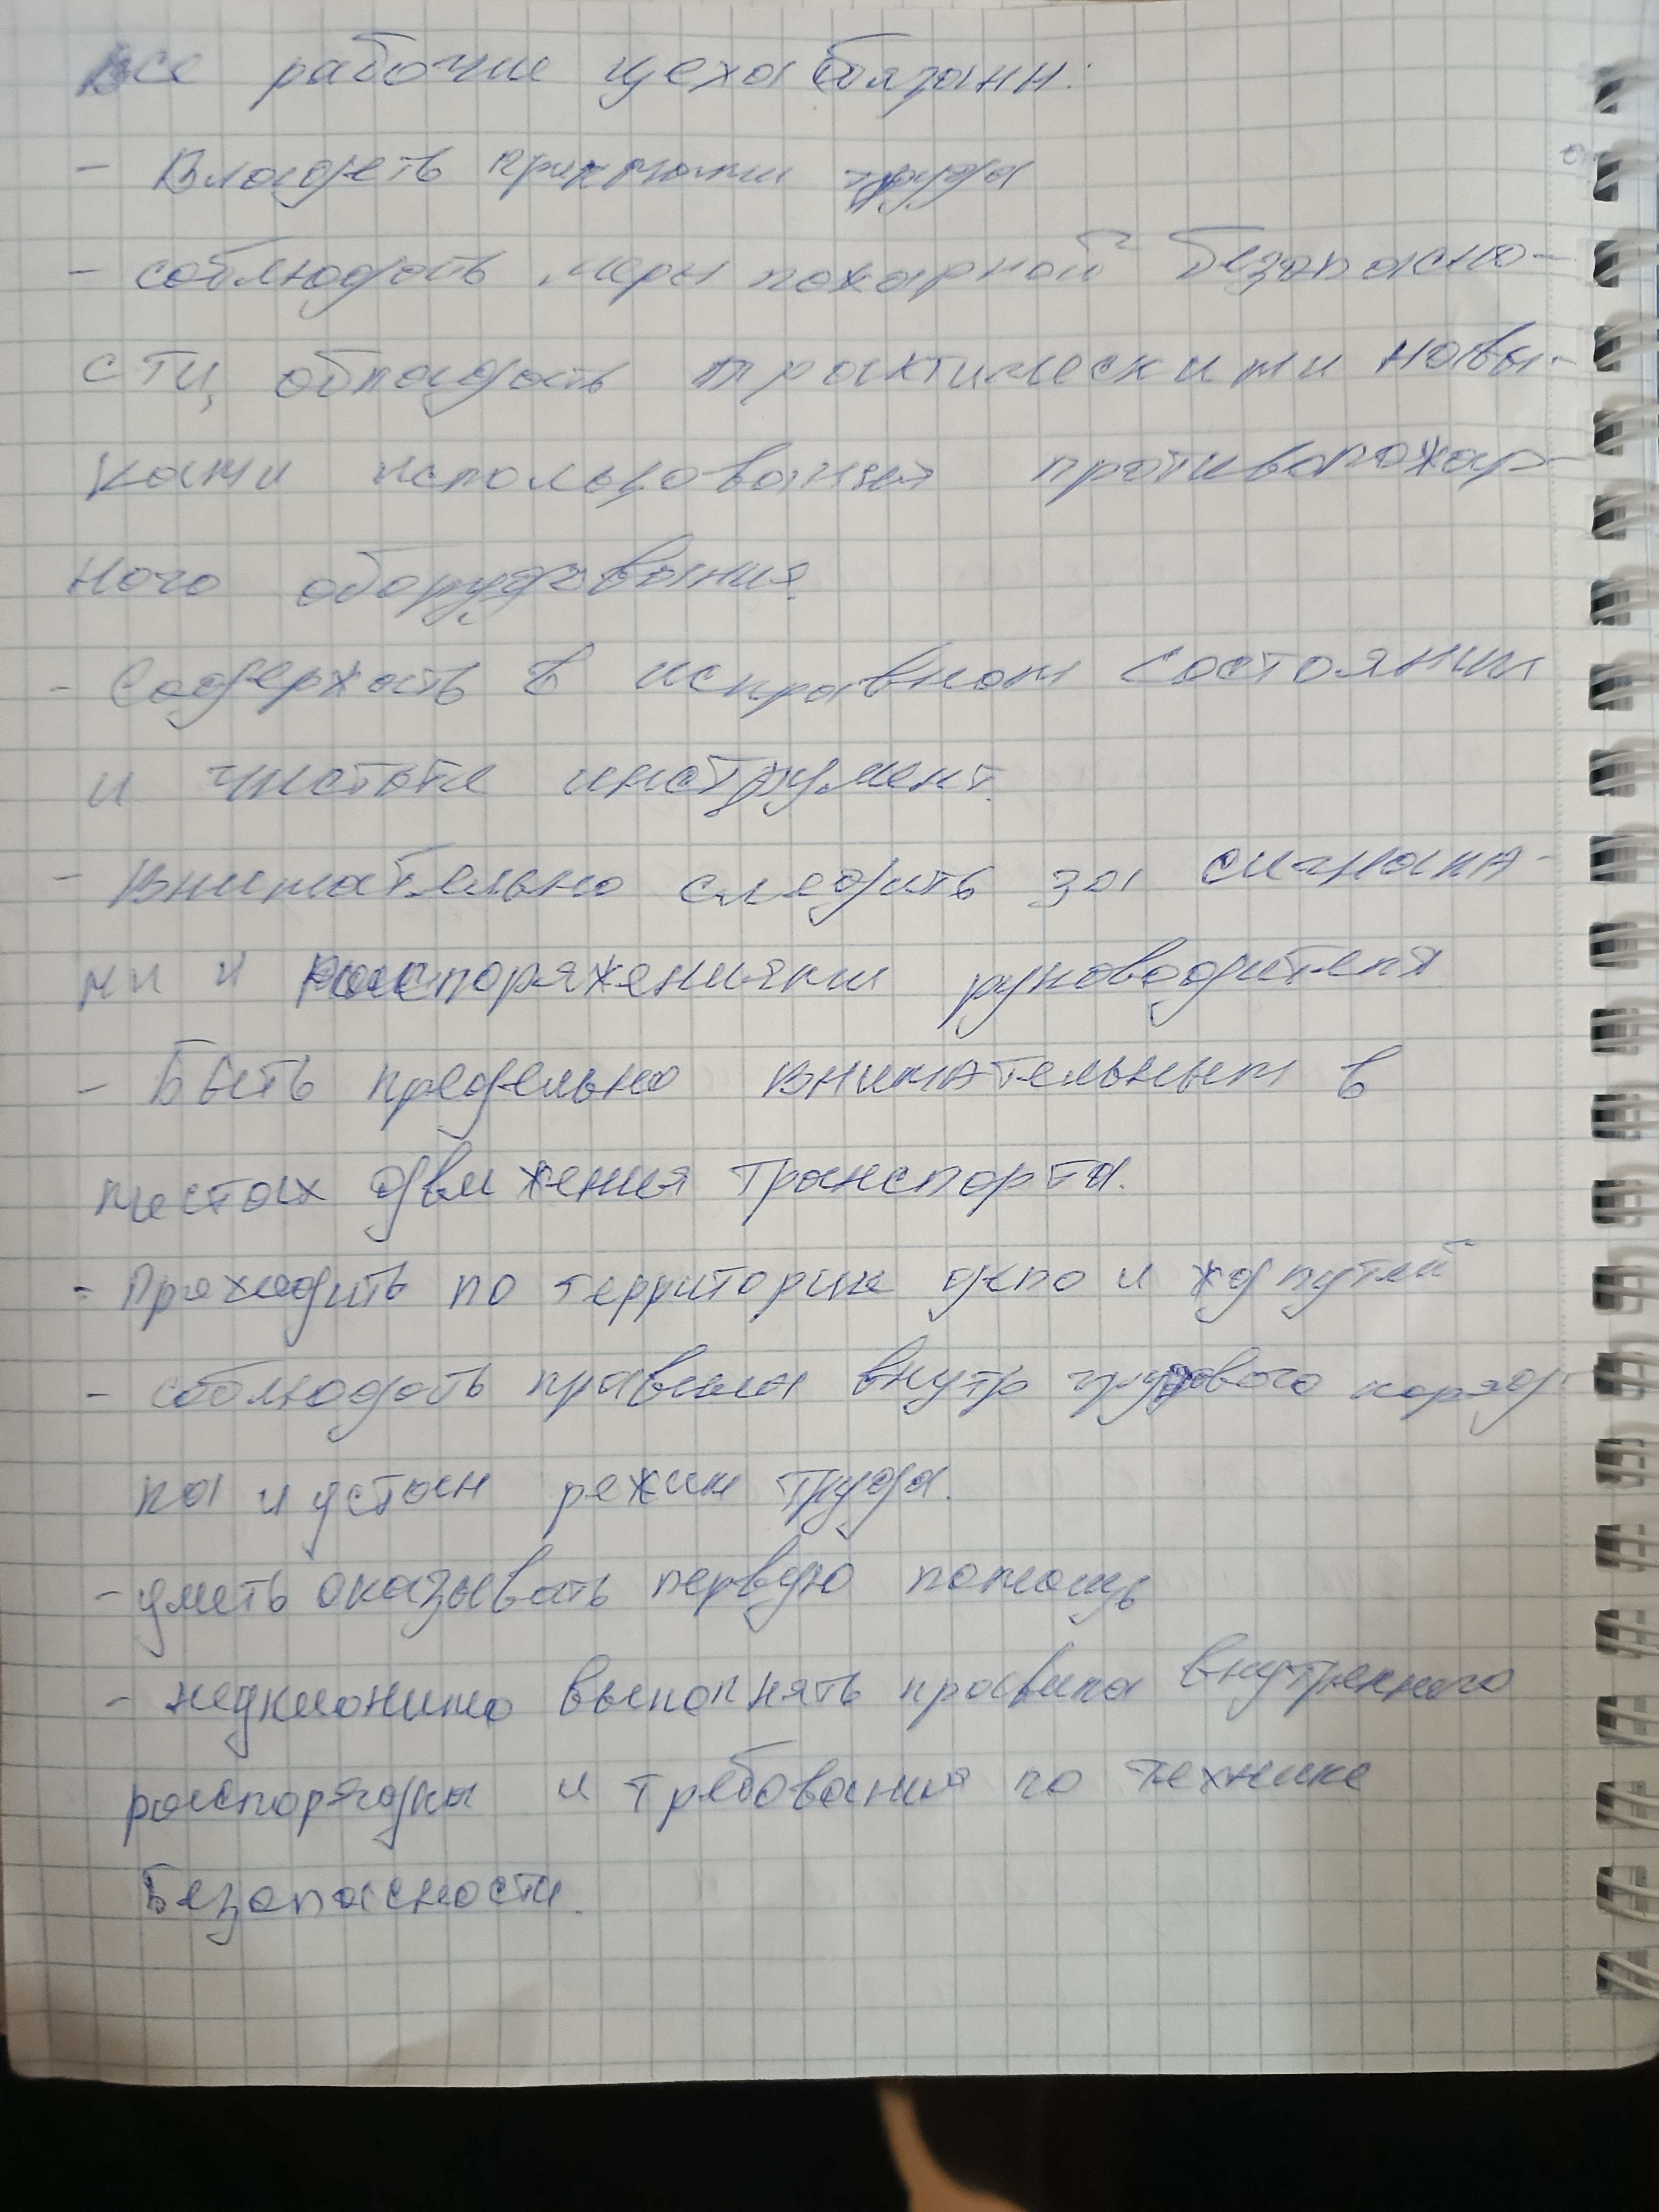 Все рабочие цеха обязаны:
- Владеть приемами труда
- соблюдать меры пожарной безопасно-
сти, обладать практическими навы-
ками использования противопожар-
ного оборудования.
- Содержать в исправном состоянии
и чистоте инструмент.
- Внимательно следить за сигнала-
ми и распоряжениями руководителя
- Быть предельно внимательным в
местах движения транспорта.
- Проходить по территории депо и жд путей
- соблюдать правила внутр трудового поряд-
ка и устан режим труда.
- уметь оказывать первую помощь
- неуклонимо выполнять правила внутренного
распорядка и требования по технике
Безопасности.